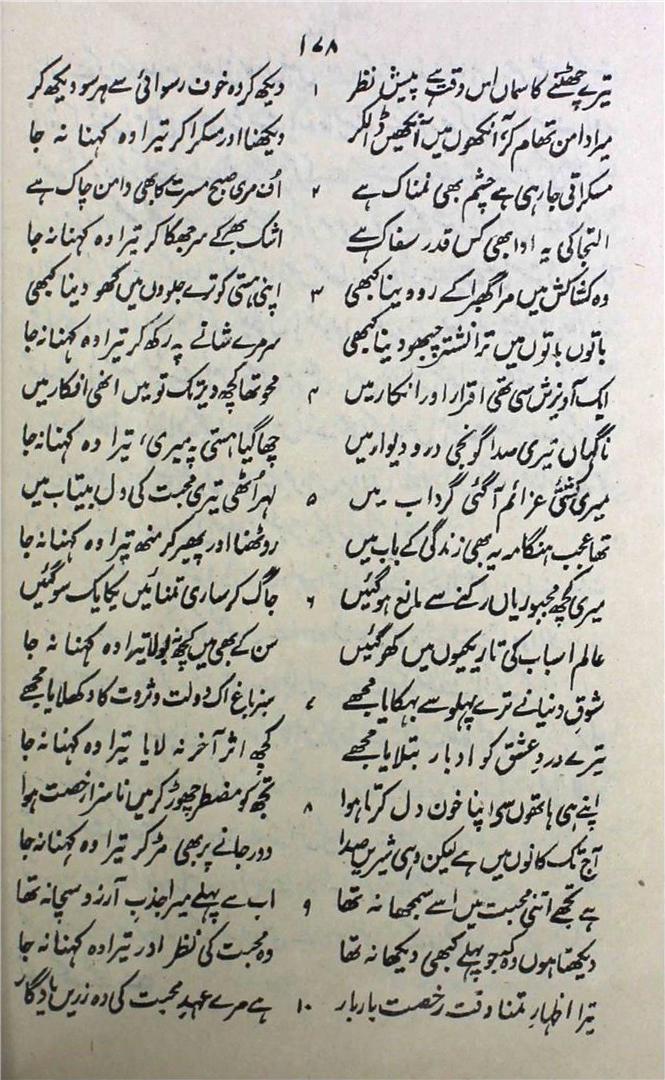 ۱۷۸
تیرے چھٹنے کا سماں اس وقت ہے پیش نظر ۱ دیکھ کر وہ خوف رسوائی سے ہر سو دیکھ کر
میرا دامن تھام کر آنکھوں میں آنکھیں ڈالکر دیکھنا اور مسکرا کر تیرا وہ کہنا نہ جا
مسکراتی جا رہی ہے چشم بھی نمناک ہے ۲ اُف مری صبح مسرت کا بھی دامن چاک ہے
التجا کی یہ ادا بھی کس قدر سفاک ہے اشک بھر کے سر جھکا کر تیرا وہ کہنا نہ جا
وہ کشاکش میں مرا گھبرا کے رو دینا کبھی ۳ اپنی ہستی کو ترے جلووں میں کھو دینا کبھی
باتوں باتوں میں ترا نشتر چبھو دینا کبھی سر مرے شانے پہ رکھ کر تیرا وہ کہنا نہ جا
ایک آویزش سی تھی اقرار اور انکار میں ۴ محو تھا کچھ دیر تک تو میں انھی افکار میں
ناگہاں تیری صدا گونجی در و دیوار میں چھا گیا ہستی پہ میری، تیرا وہ کہنا نہ جا
میری کشتیٔ عزائم آ گئی گرداب میں ۵ لہر اُٹھی تیری محبت کی دل بیتاب میں
تھا عجب ہنگامہ یہ بھی زندگی کے باب میں روٹھنا اور پھیر کر منھ تیرا وہ کہنا نہ جا
میری کچھ مجبوریاں رکنے سے مانع ہو گئیں ۶ جاگ کر ساری تمنائیں یکایک سو گئیں
عالم اسباب کی تاریکیوں میں کھو گئیں سن کے بھی میں کچھ نہ بولا تیرا وہ کہنا نہ جا
شوقِ دنیا نے ترے پہلو سے بہکایا مجھے ۷ سبز باغ اک دولت و ثروت کا دکھلایا مجھے
تیرے دردِ عشق کو ادبار بتلایا مجھے کچھ اثر آخر نہ لایا تیرا وہ کہنا نہ جا
اپنے ہی ہاتھوں سے اپنا خون دل کرتا ہوا ۸ تجھ کو مضطر چھوڑ کر میں ناسزا رخصت ہوا
آج تک کانوں میں ہے لیکن وہی شیریں صدا دور جانے پر بھی مڑ کر تیرا وہ کہنا نہ جا
ہے تجھے اتنی محبت میں اسے سمجھا نہ تھا ۹ اب سے پہلے میرا جذبِ آرزو سچا نہ تھا
دیکھتا ہوں وہ کہ جو پہلے کبھی دیکھا نہ تھا وہ محبت کی نظر اور تیرا وہ کہنا نہ جا
تیرا اظہارِ تمنا وقت رخصت بار بار ۱۰ ہے مرے عہدِ محبت کی وہ زریں یادگار